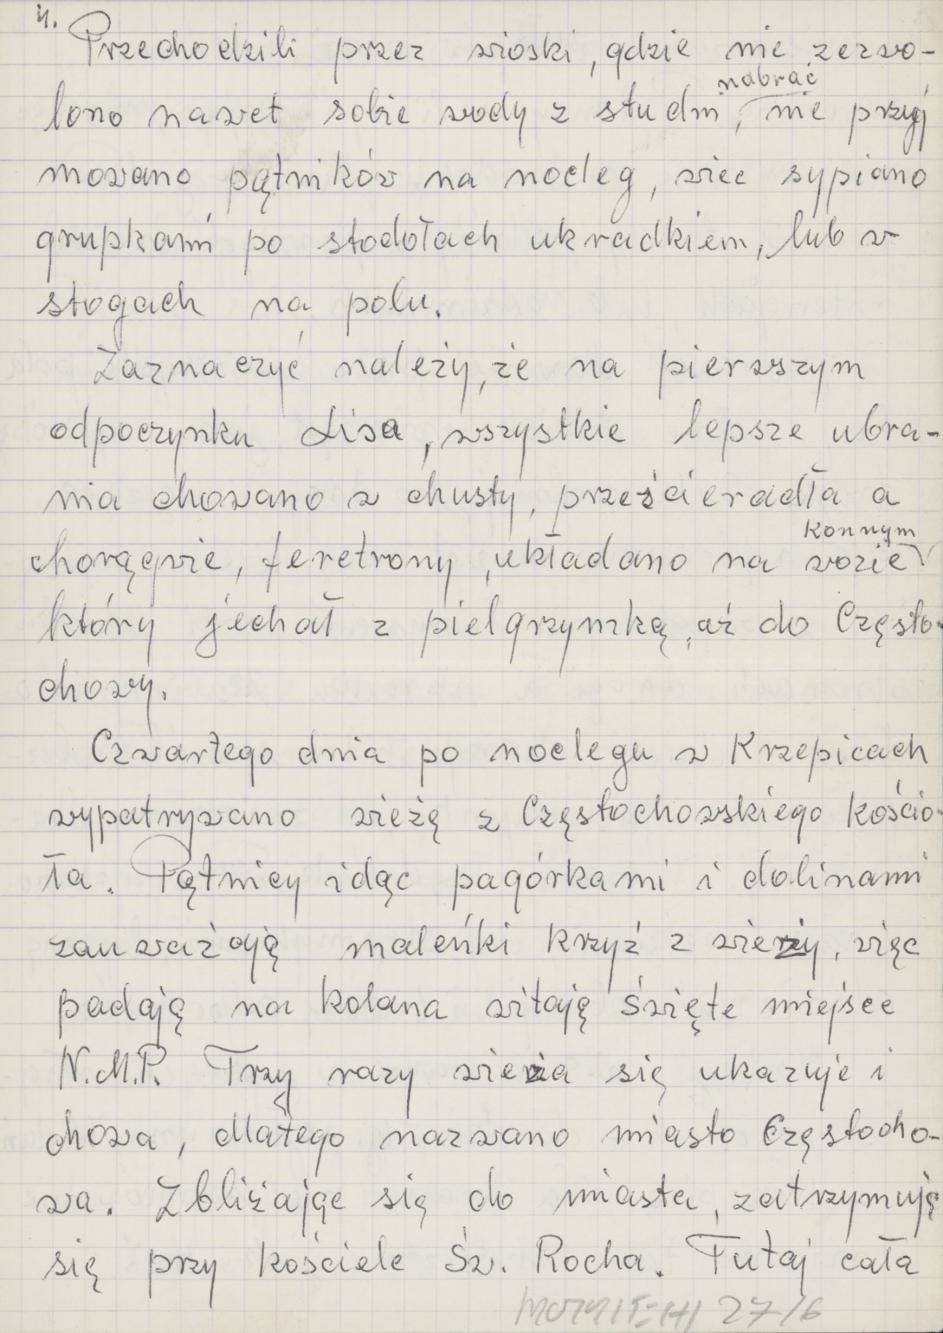 4.
Przechodzili przez wioski, gdzie nie zezwo-
nabrać
lono nawet sobie wody z studni, nie przyj
mowano pątników na nocleg, wiec sypiano
grupkami po stodołach ukradkiem, lub w
stogach na polu.
Zaznaczyć należy, że na pierwszym
odpoczynku Lisa, wszystkie lepsze ubra-
nia chowano w chusty, prześcieradła a
konnym
chorągwie, feretrony, układano na wozie
który jechał z pielgrzymką, aż do Często-
chowy.
Czwartego dnia po noclegu w Krzepicach
wypatrywano wieżę z Częstochowskiego kościo-
ła. Pątnicy idąc pagórkami i dolinami
zauważają maleńki krzyż z wieży, więc
padają na kolana witają święte miejsce
N.M.P. Trzy razy wieża się ukazuje i
chowa, dlatego nazwano miasto Częstocho-
wa. Zbliżając się do miasta, zatrzymują
się przy kościele Św. Rocha. Tutaj cała
27/6